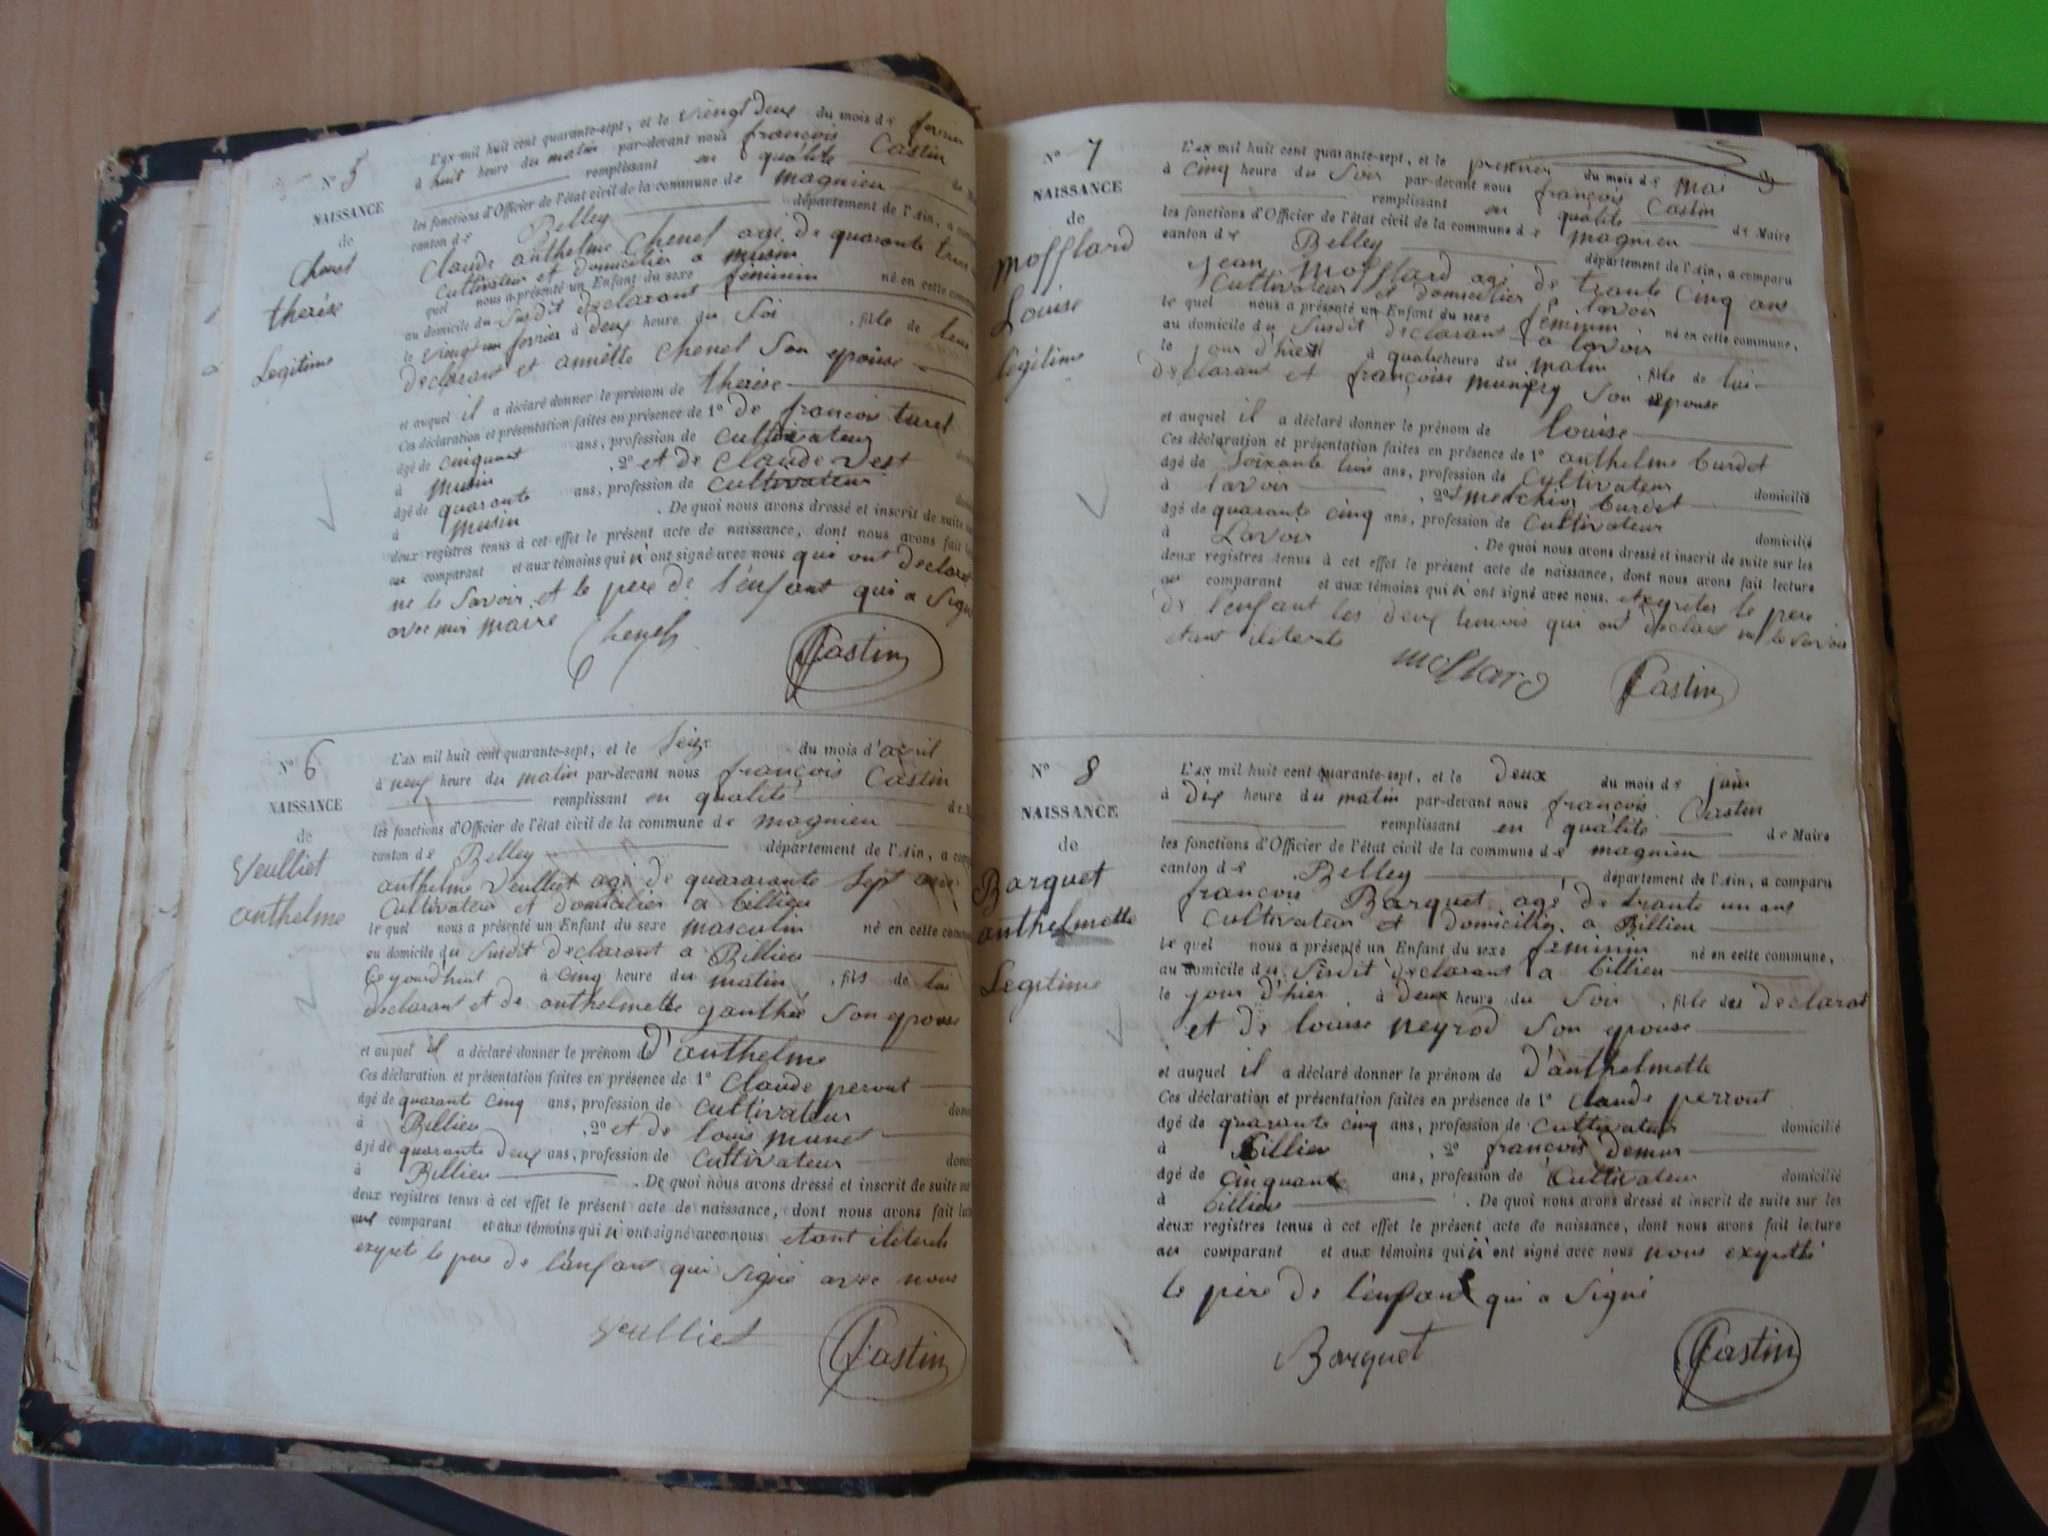 N° 5
NAISSANCE
de
Chenel
therése
Legitime
L'AN mil huit cent quarante-sept, et le vingt deux du mois de fevrier
à huit heure du matin par-devant nous françois Castin
remplissant en qualité
les fonctions d'Officier de l'état civil de la commune de magnieu
canton de Belley département de l'Ain, a
Claude anthelme Chenel agé de quarante trois
Cultivateur et domicilier a musin
quel nous a présenté un Enfant du sexe féminin né en cette
au domicile du susdit declarant
le vingt un fevrier à deux heure du Soir , fille de
declarant et annette Chenel Son epouse
et auquel il a déclaré donner le prénom de therése
Ces déclaration et présentation faites en présence de 1° de françois turel
âgé de cinquant ans, profession de Cultivateur
à musin , 2° et de Claude Vest
âgé de quarante ans, profession de Cultivateur
à musin . De quoi nous avons dressé et inscrit de suite
deux registres tenus à cet effet le présent acte de naissance, dont nous avons fait
au comparant et aux témoins qui n'ont signé avec nous qui ont declaré
ne le Savoir et le pere de l'enfant qui a Signé
avec moi maire
Chenel Castin
N° 6
NAISSANCE
de
Veulliet
anthelme
L'AN mil huit cent quarante-sept, et le Seize du mois d'avril
à neuf heure du matin par-devant nous françois Castin
remplissant en qualité
les fonctions d'Officier de l'état civil de la commune de magnieu
canton de Belley département de l'Ain, a
anthelme Veulliet agé de quararante Sept ans
Cultivateur et domicilier a billieu
le quel nous a présenté un Enfant du sexe masculin né en cette
au domicile du Susdit declarant a Billieu
à cinq heure du matin , fils de lui
declarant et de anthelmette ganthié Son epouse
et auquel il a déclaré donner le prénom D'anthelme
Ces déclaration et présentation faites en présence de 1° Claude perout
âgé de quarante cinq ans, profession de Cultivateur
à Billieu , 2° et de louis munet
âgé de quarante deux ans, profession de Cultivateur
à Billieu . De quoi nous avons dressé et inscrit de suite
deux registres tenus à cet effet le présent acte de naissance, dont nous avons fait
comparant et aux témoins qui n'ont signé avec nous etant
le pere de l'enfant qui Signé avec nous
Veulliet Castin
N° 7
NAISSANCE
de
Mofflard
Louise
légitime
L'AN mil huit cent quarante-sept, et le premier du mois de mai
à cinq heure du Soir par-devant nous françois Castin
remplissant en qualité de Maire
les fonctions d'Officier de l'état civil de la commune de magnieu
canton de Belley département de l'Ain, a comparu
jean Mofflard agé de trante Cinq ans
Cultivateur et domicilier a lavoir
le quel nous a présenté un Enfant du sexe féminin né en cette commune,
au domicile du Susdit declarant a lavoir
le jour d'hier à quatre heure du matin , fille de lui
declarant et françoise Son epouse
et auquel il a déclaré donner le prénom de louise
Ces déclaration et présentation faites en présence de 1° anthelme burdet
âgé de Soixante trois ans, profession de Cultivateur
à lavoir , 2° merchior burdet domicilié
âgé de quarante cinq ans, profession de Cultivateur
à Lavoir domicilié
. De quoi nous avons dressé et inscrit de suite sur les
deux registres tenus à cet effet le présent acte de naissance, dont nous avons fait lecture
au comparant et aux témoins qui n'ont signé avec nous. le pere
de l'enfant les deux temois qui ont declaré ne le Savoir
etant
mofflard Castin
N° 8
NAISSANCE
de
Barquet
anthelmette
Legitime
L'AN mil huit cent quarante-sept, et le Deux du mois de juin
à Dix heure du matin par-devant nous françois Castin
remplissant en qualité de Maire
les fonctions d'Officier de l'état civil de la commune de magnieu
canton de Belley département de l'Ain, a comparu
françois Barquet agé de trante un ans
Cultivateur et domicilier a Billieu
le quel nous a présenté un Enfant du sexe féminin né en cette commune,
au domicile du Susdit declarant a billieu
le jour d'hier à Deux heure du Soir , fille du declarat
et de louise neyrod Son epouse
et auquel il a déclaré donner le prénom de D'anthelmette
Ces déclaration et présentation faites en présence de 1° Claude perrout
âgé de quarante cinq ans, profession de Cultivateur domicilié
à Billieu , 2° françois
âgé de cinquant ans, profession de Cultivateur domicilié
à billieu . De quoi nous avons dressé et inscrit de suite sur les
deux registres tenus à cet effet le présent acte de naissance, dont nous avons fait lecture
au comparant et aux témoins qui n'ont signé avec nous nous
le père de l'enfant qui a Signé
Barquet Castin